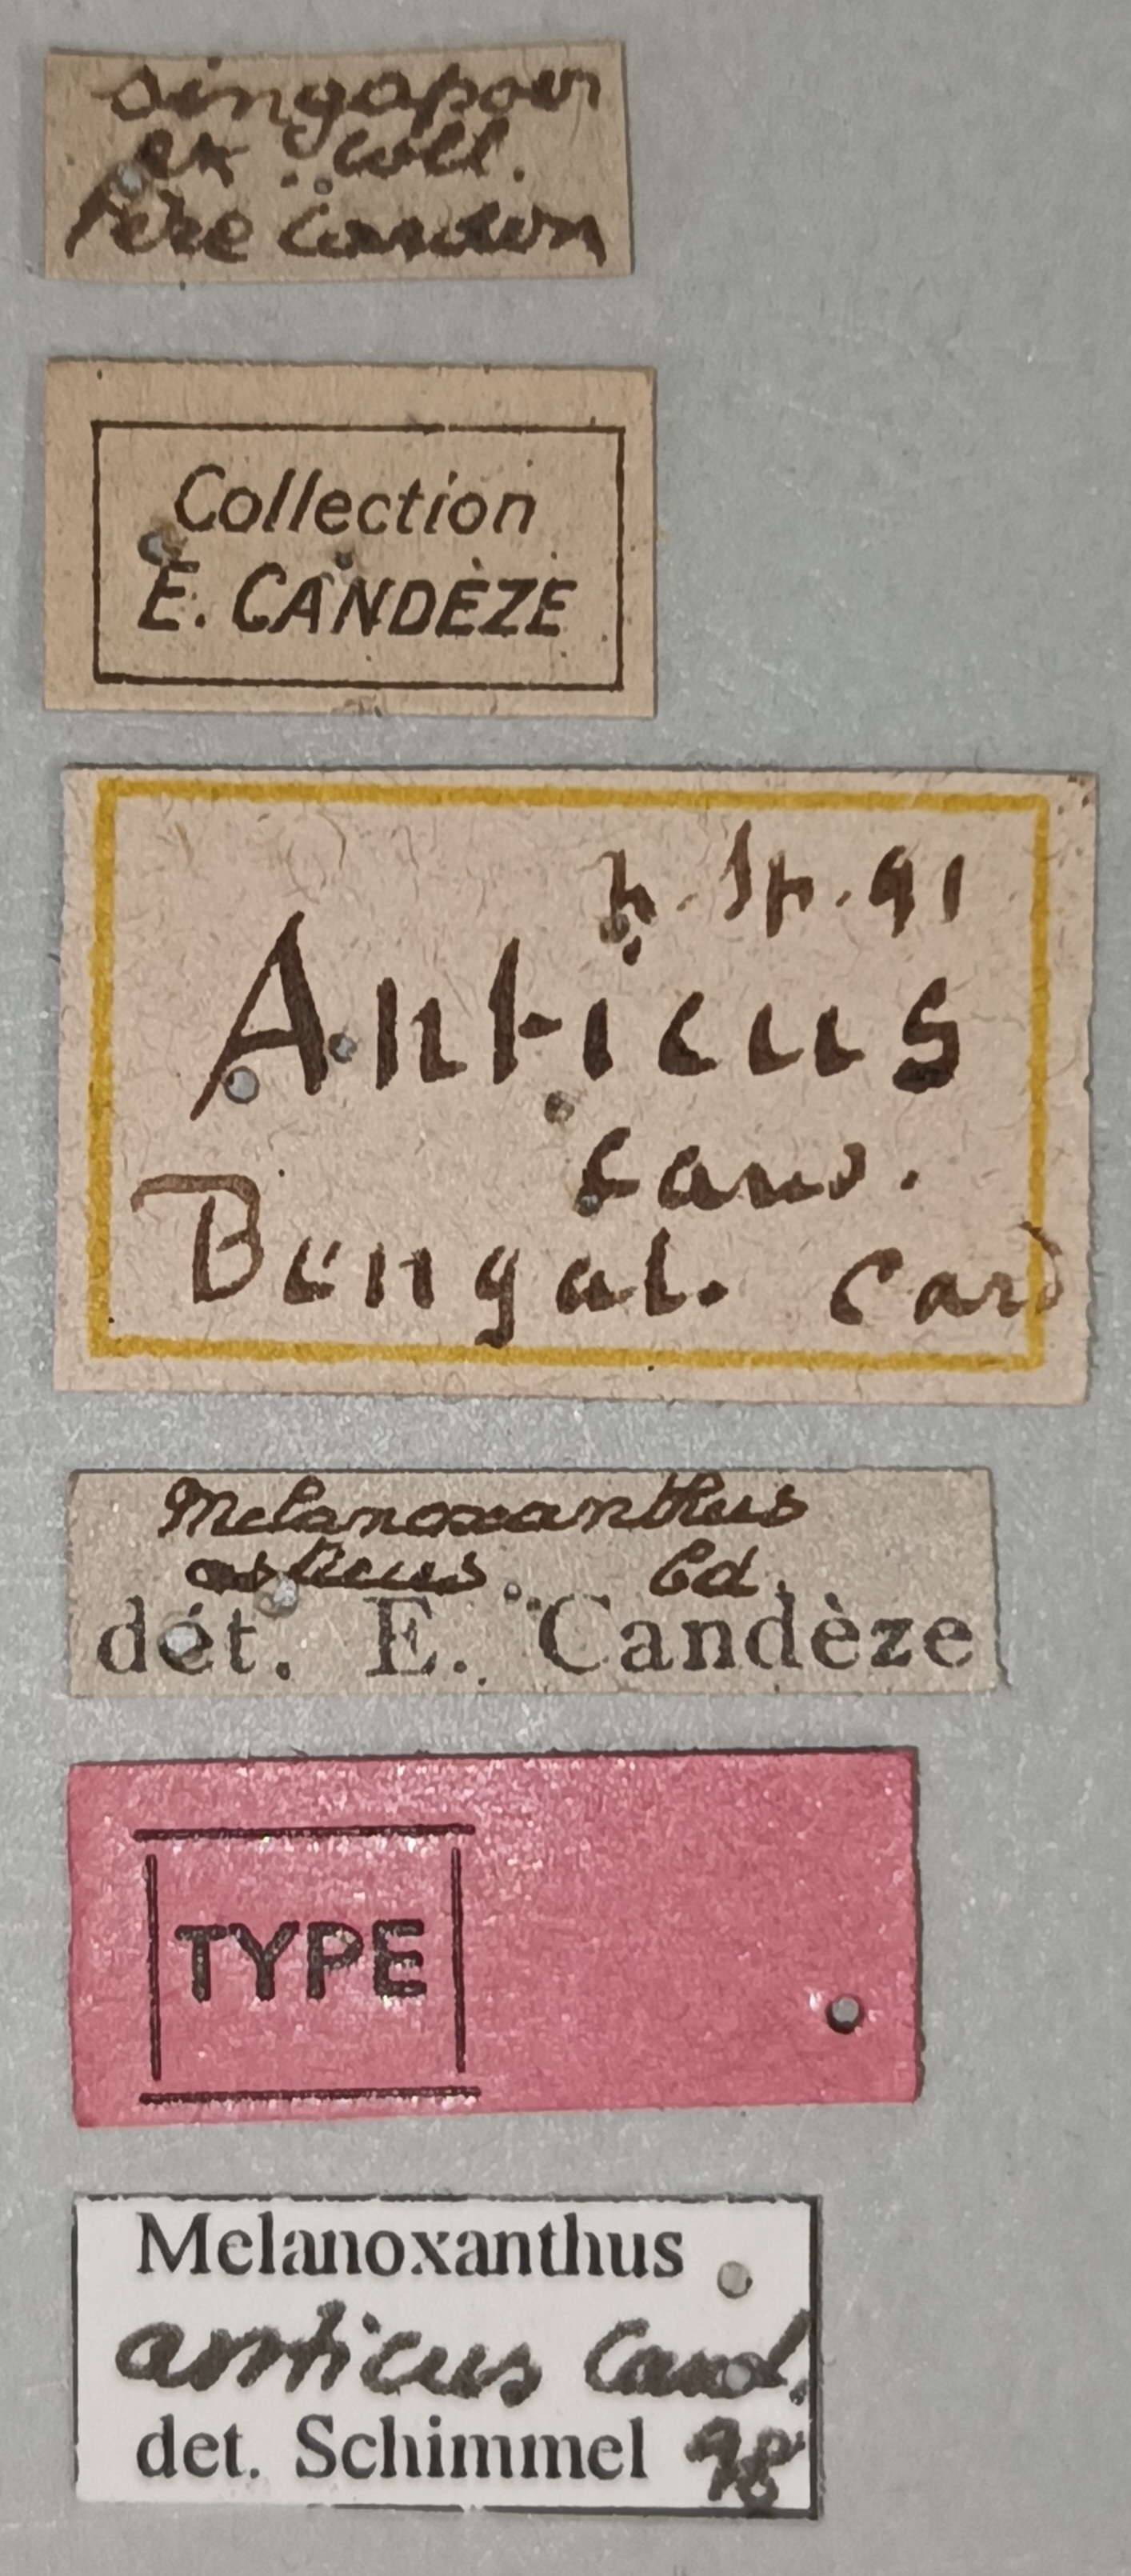 Singapour
ex. coll.
Père
Collection
E. CANDÈZE
n. sp. 91
Anticus
Cand.
Bengal. Card
Melanoxanthus
anticus Cd.
dét. E. Candèze
TYPE
Melanoxanthus
anticus Cand.
det. Schimmel 98